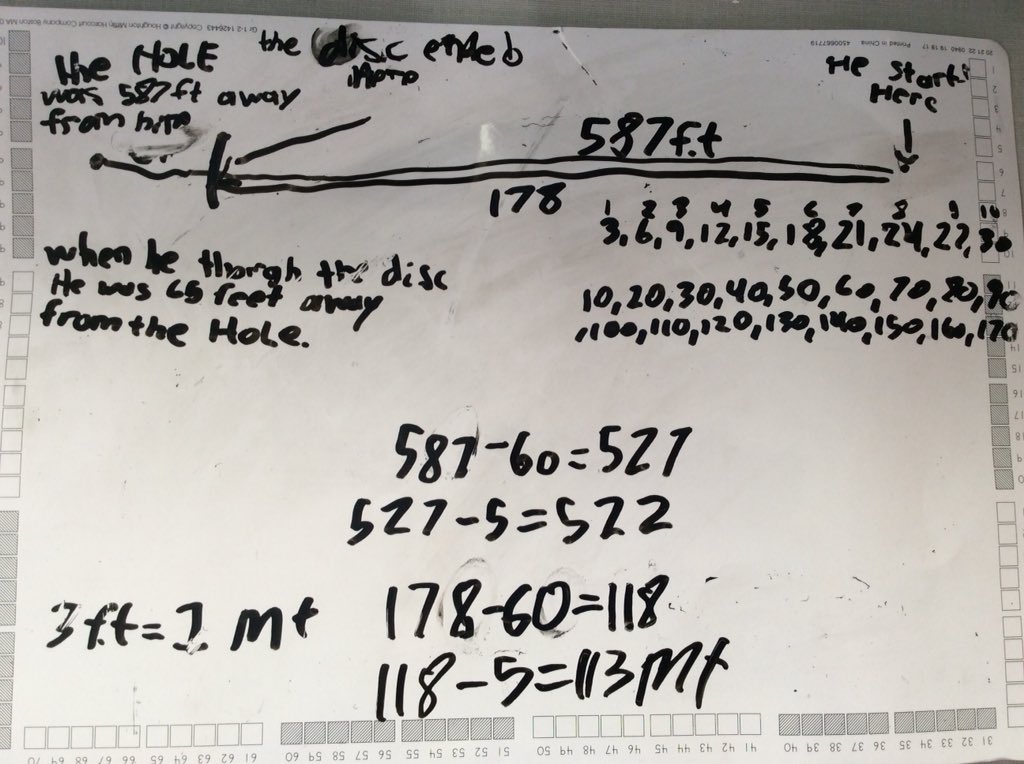 Gr 1-2 1426443 Copyright © Houghton Mifflin Harcourt Company Boston MA
Printed in China 4500667719
20 21 22 0940 19 18 17
the HOLE
was 587ft away
from him
the disc ended
He start
Here
587f.t
178
1 2 3 4 5 6 7 8 9 10
3, 6, 9, 12, 15, 18, 21, 24, 27, 30
10, 20, 30, 40, 50, 60, 70, 80, 90
, 100, 110, 120, 130, 140, 150, 160, 170
when he throgh the disc
He was 65 feet away
from the Hole.
587-60=527
527-5=522
178-60=118
118-5=113mt
3 ft=1 mt
61 62 63 64 65 66 67 68 69 70
51 52 53 54 55 56 57 58 59 60
41 42 43 44 45 46 47 48 49 50
31 32 33 34 35 36 37 38 39 40